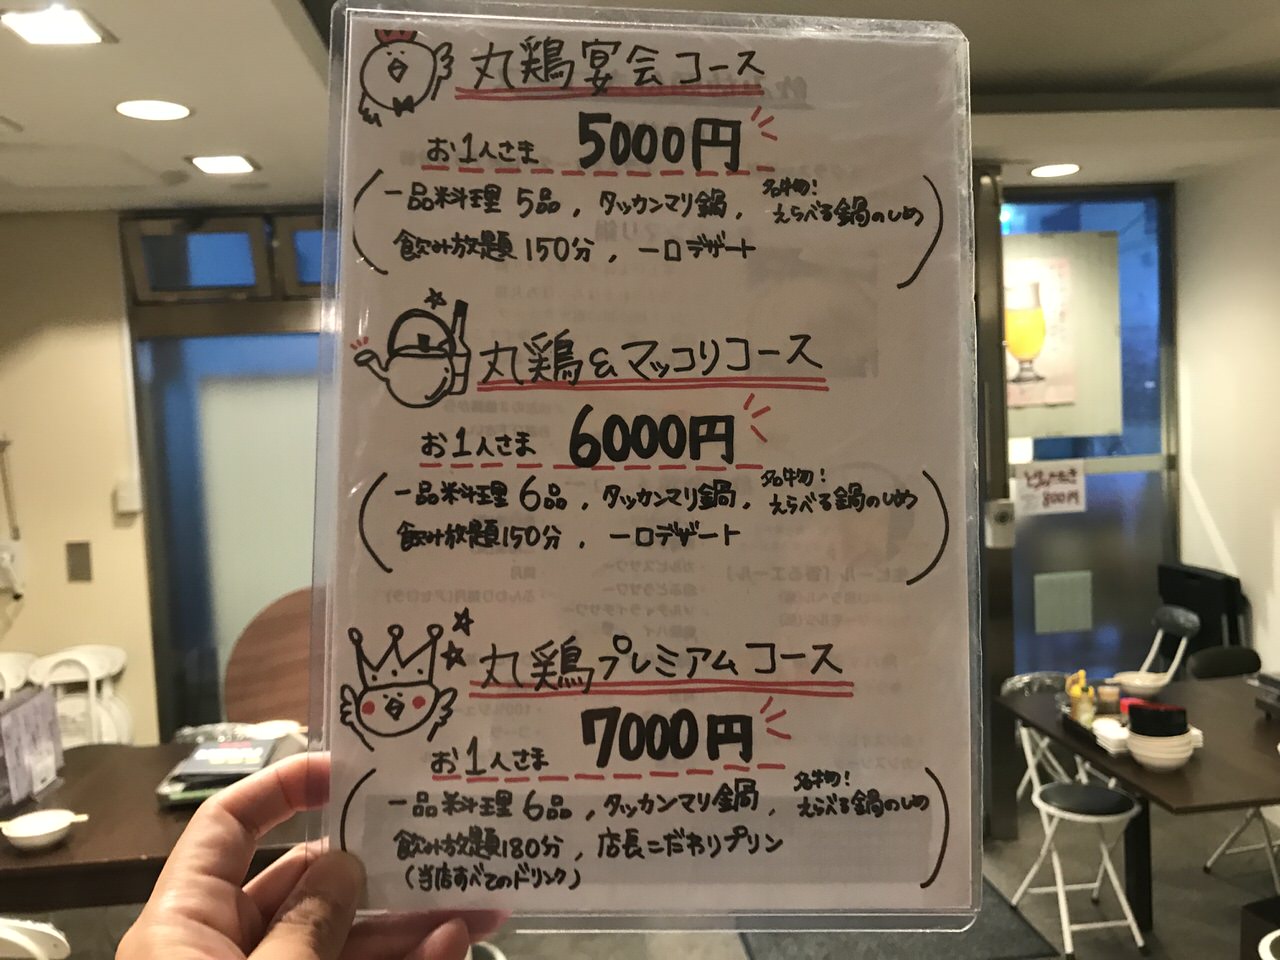 丸鶏宴会コース
お1人さま 5000円
一品料理 5品, タッカンマリ鍋, 名物! えらべる鍋のしめ
飲み放題 150分, 一口デザート
丸鶏&マッコリコース
お1人さま 6000円
一品料理 6品, タッカンマリ鍋, 名物! えらべる鍋のしめ
飲み放題150分, 一口デザート
丸鶏プレミアムコース
お1人さま 7000円
一品料理 6品, タッカンマリ鍋, 名物! えらべる鍋のしめ
飲み放題180分, 店長こだわりプリン
(当店すべてのドリンク)
800円